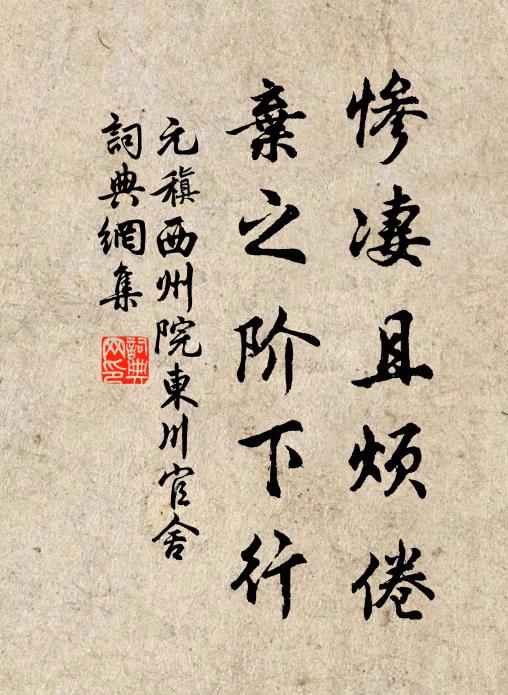 惨凄且烦倦
棄之阶下行
元稹西州院東川官舍
詞典網集
詞典網印